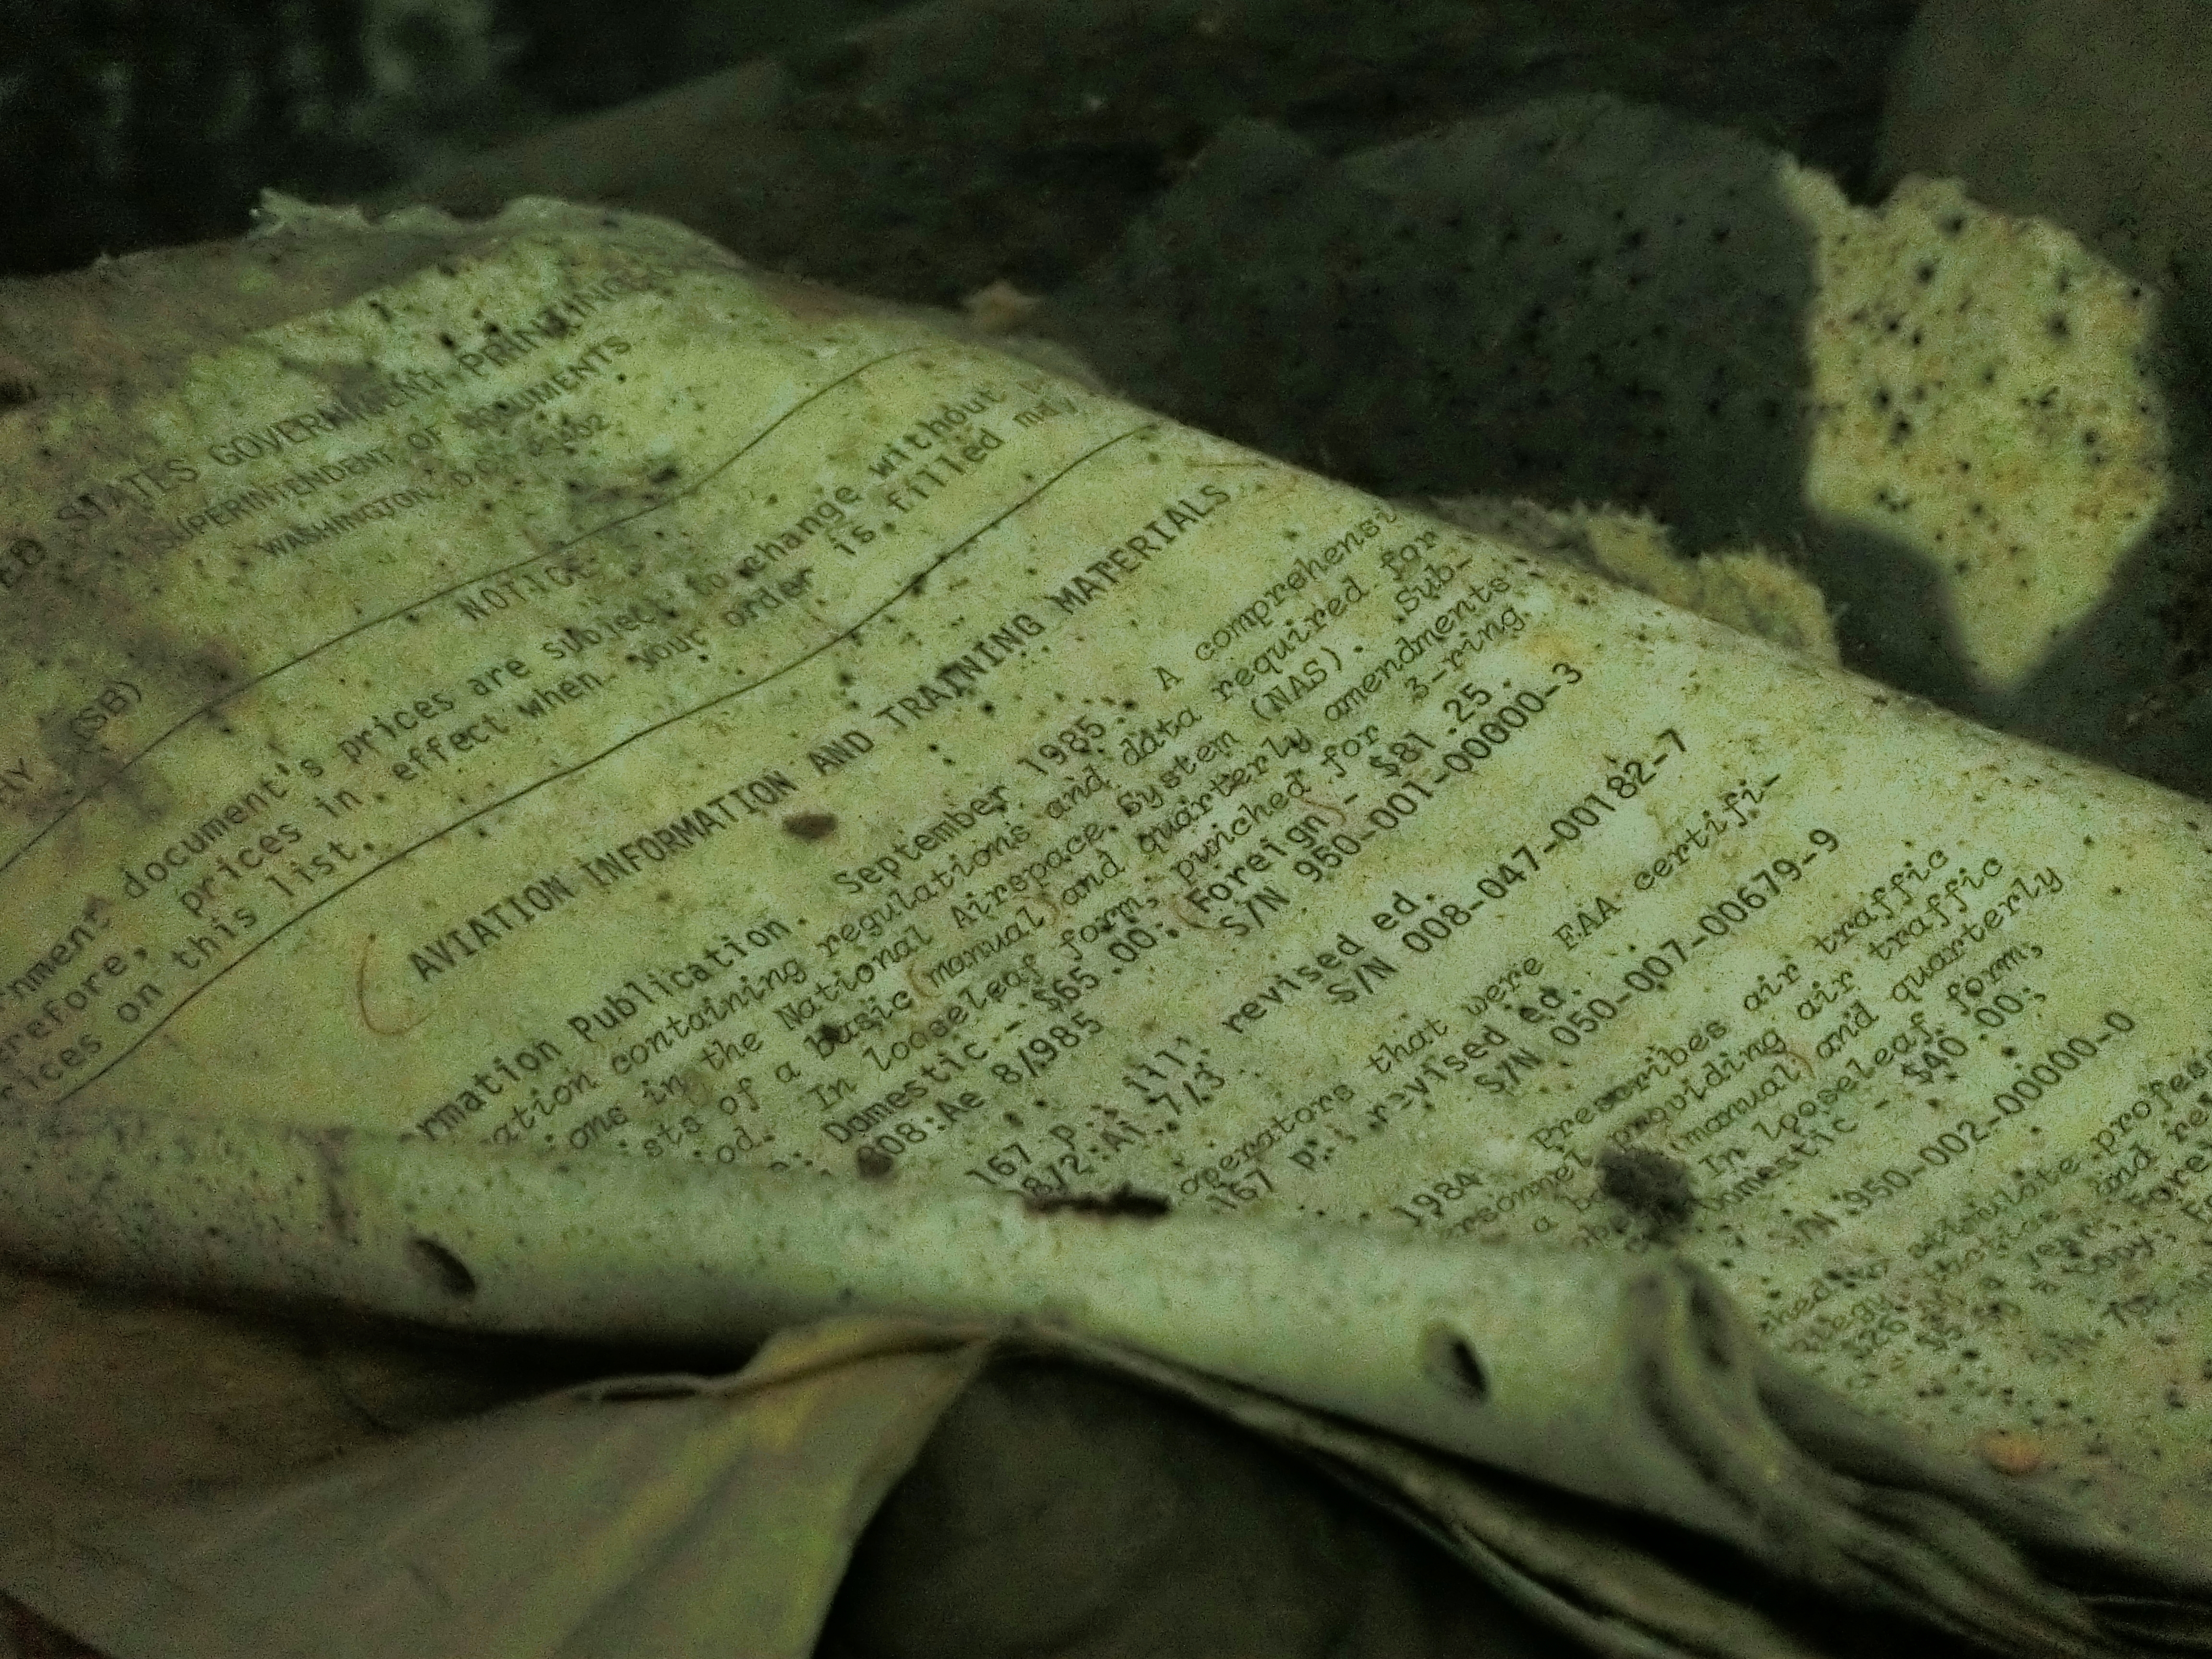 ED STATES GOVERNMENT PRINTING
SUPERINTENDENT OF DOCUMENTS
WASHINGTON, D.C.
(SB)
NOTICE
rnment document's prices are subject to change without
erefore, prices in effect when your order is filled may
rices on this list.
AVIATION INFORMATION AND TRAINING MATERIALS
rmation Publication. September 1985. A comprehensi
ation containing regulations and data required for
ions in the National Airspace System (NAS). Sub-
ists of a basic (manual) and quarterly amendments
od. In looseleaf form, punched for 3-ring
Domestic - $65.00; (Foreign) - $81.25.
908:Ae 8/985 S/N 950-001-00000-3
167 p., ill, revised ed.
8/2:Ai 7/3 S/N 008-047-00182-7
operators that were FAA certifi-
167 p. revised ed.
S/N 050-007-00679-9
1984. Prescribes air traffic
rsonnel providing air traffic
a (manual) and quarterly
In looseleaf form,
omestic - $40.00;
S/N 950-002-00000-0